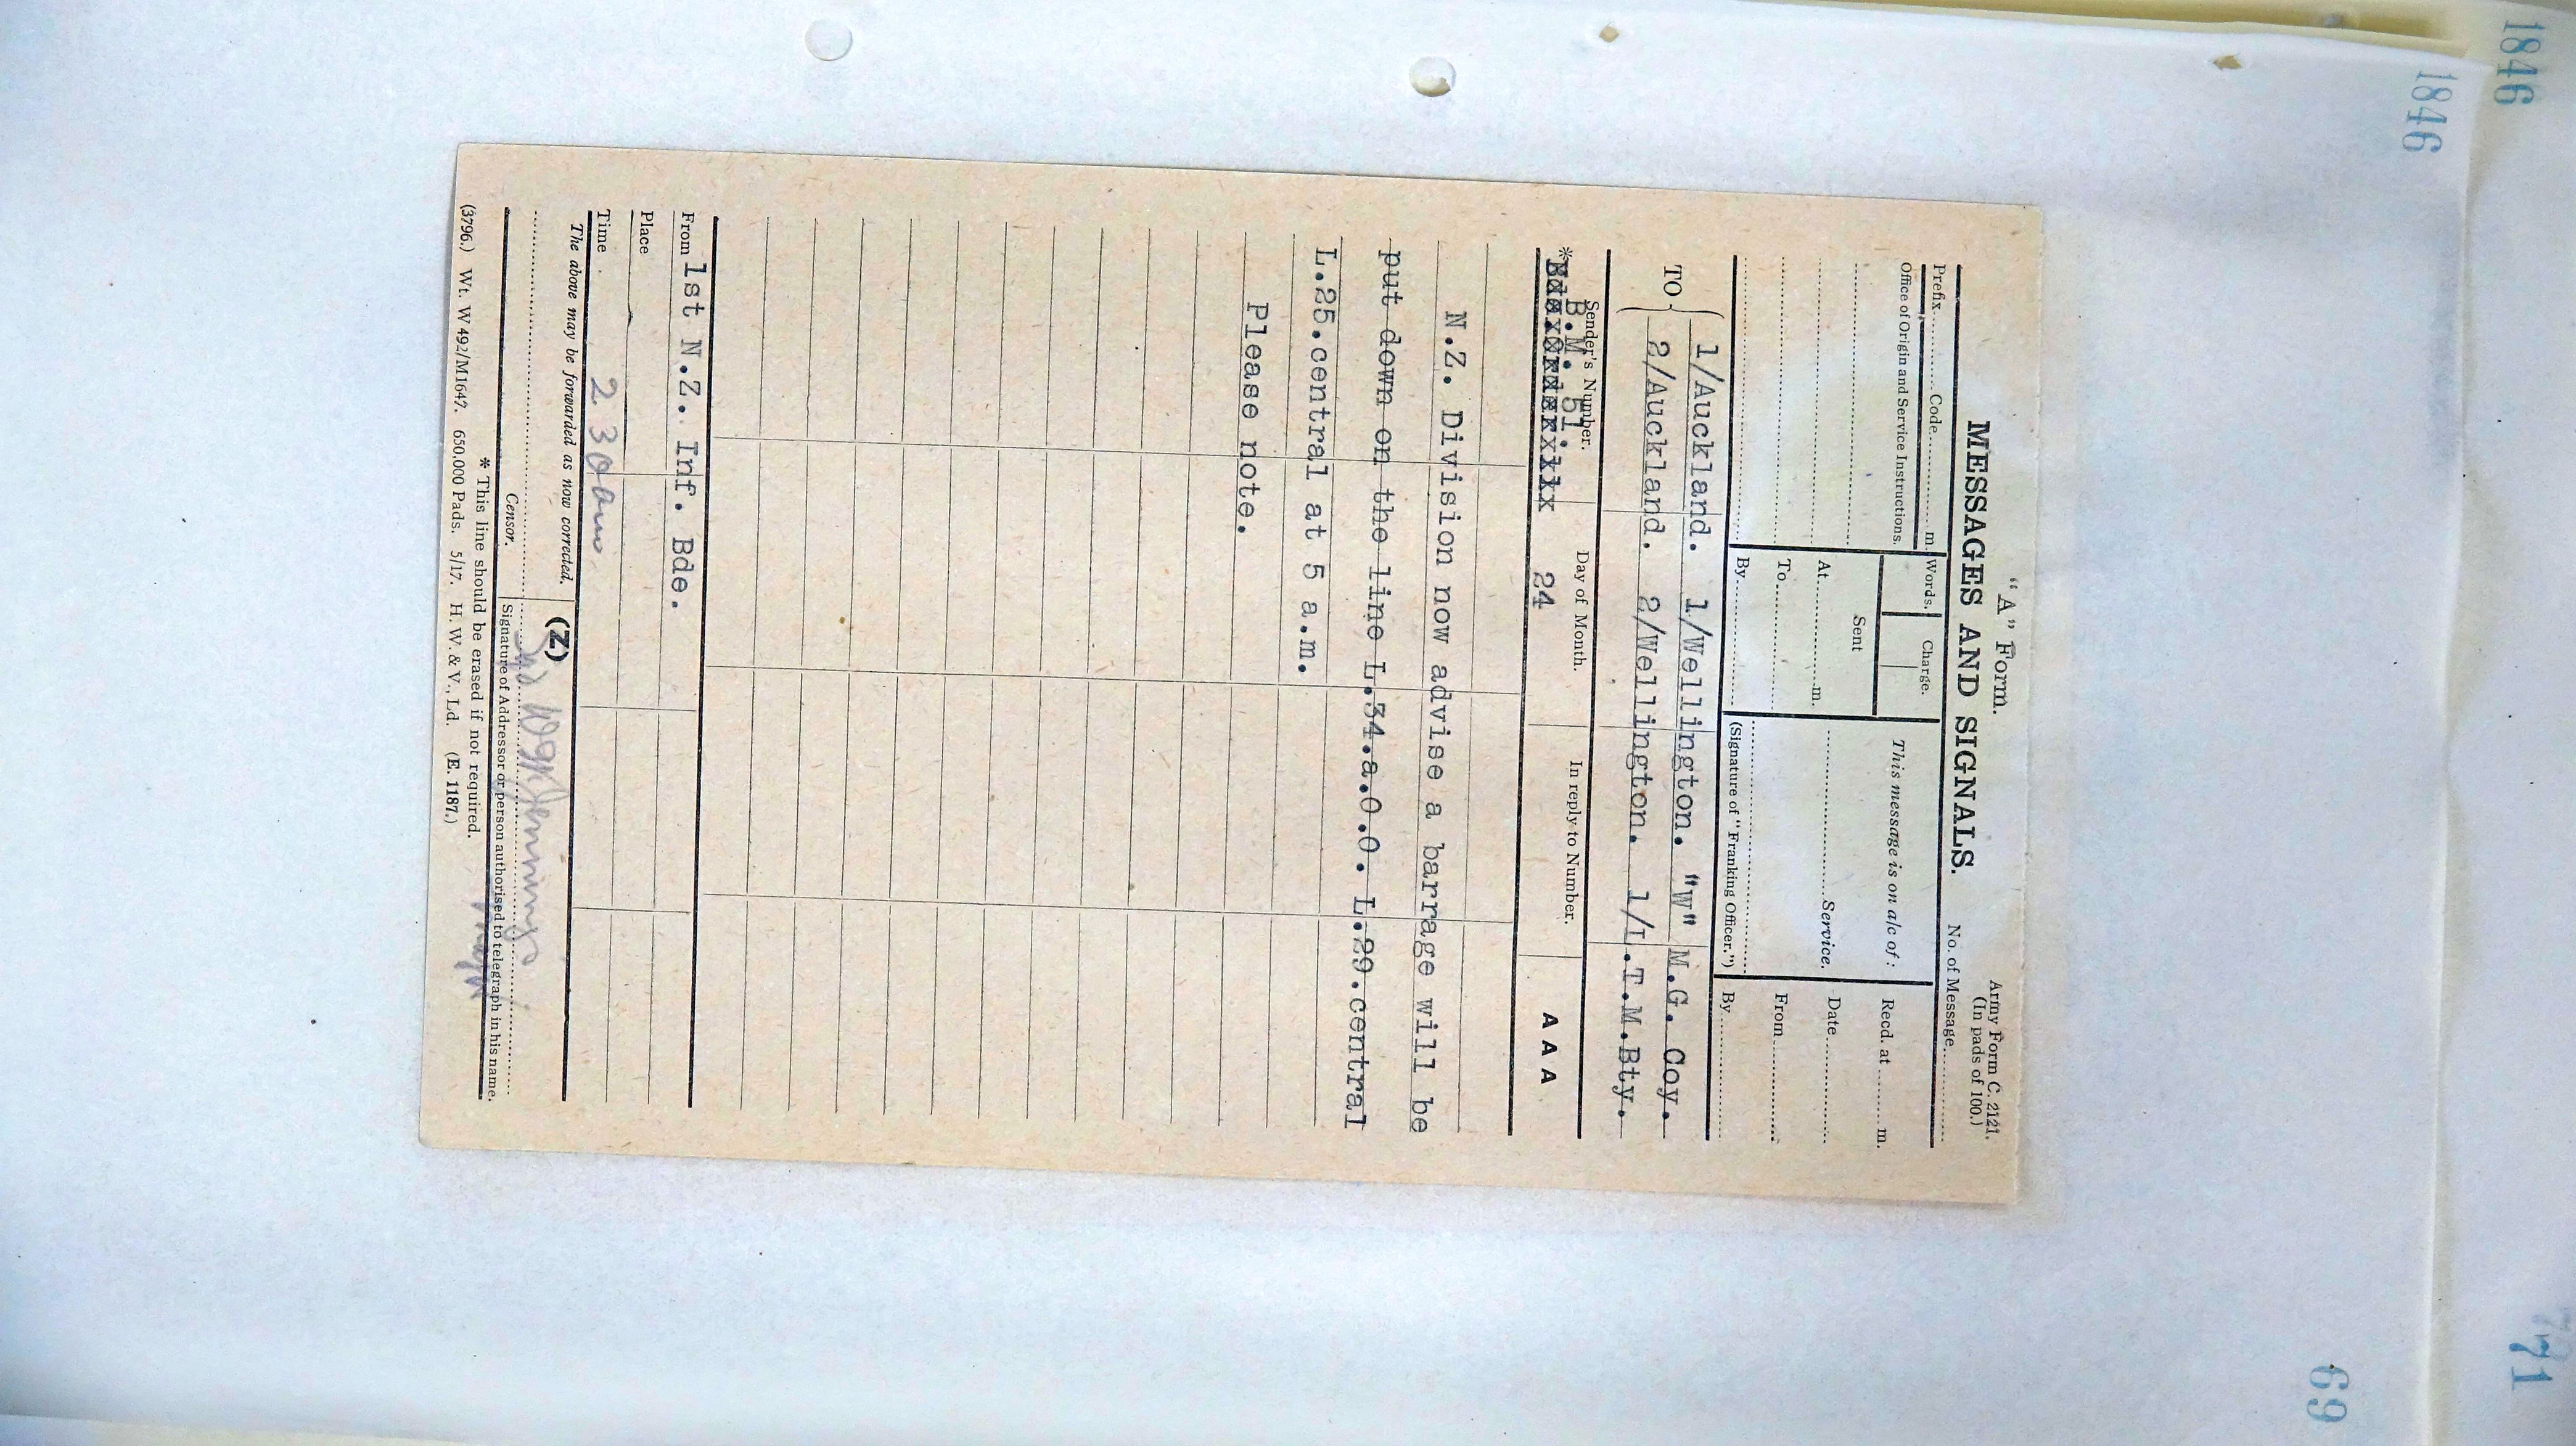 1846
1846
"A" Form.
MESSAGES AND SIGNALS.
Army Form C. 2121.
(In pads of 100.)
No. of Message
Prefix Code m.
Office of Origin and Service Instructions.
Words. Charge.
Sent
At m.
To
By
This message is on a/c of:
Service.
(Signature of "Franking Officer.")
Recd. at m.
Date
From
By
TO
1/Auckland. 1/Wellington. "W" M.G. Coy.
2/Auckland. 2/Wellington. 1/L.T.M.Bty.
Sender's Number. Day of Month. In reply to Number.
B.M. 51.
* 24 AAA
N.Z. Division now advise a barrage will be
put down on the line L.34.a.0.0. L.29.central
L.25.central at 5 a.m.
Please note.
From 1st N.Z. Inf. Bde.
Place
Time 2 30 am
The above may be forwarded as now corrected. (Z)
Jennings
Censor. Signature of Addressor or person authorised to telegraph in his name.
* This line should be erased if not required.
(3796.) Wt. W 492/M1647. 650,000 Pads. 5/17. H. W. & V., Ld. (E. 1187.)
71
69